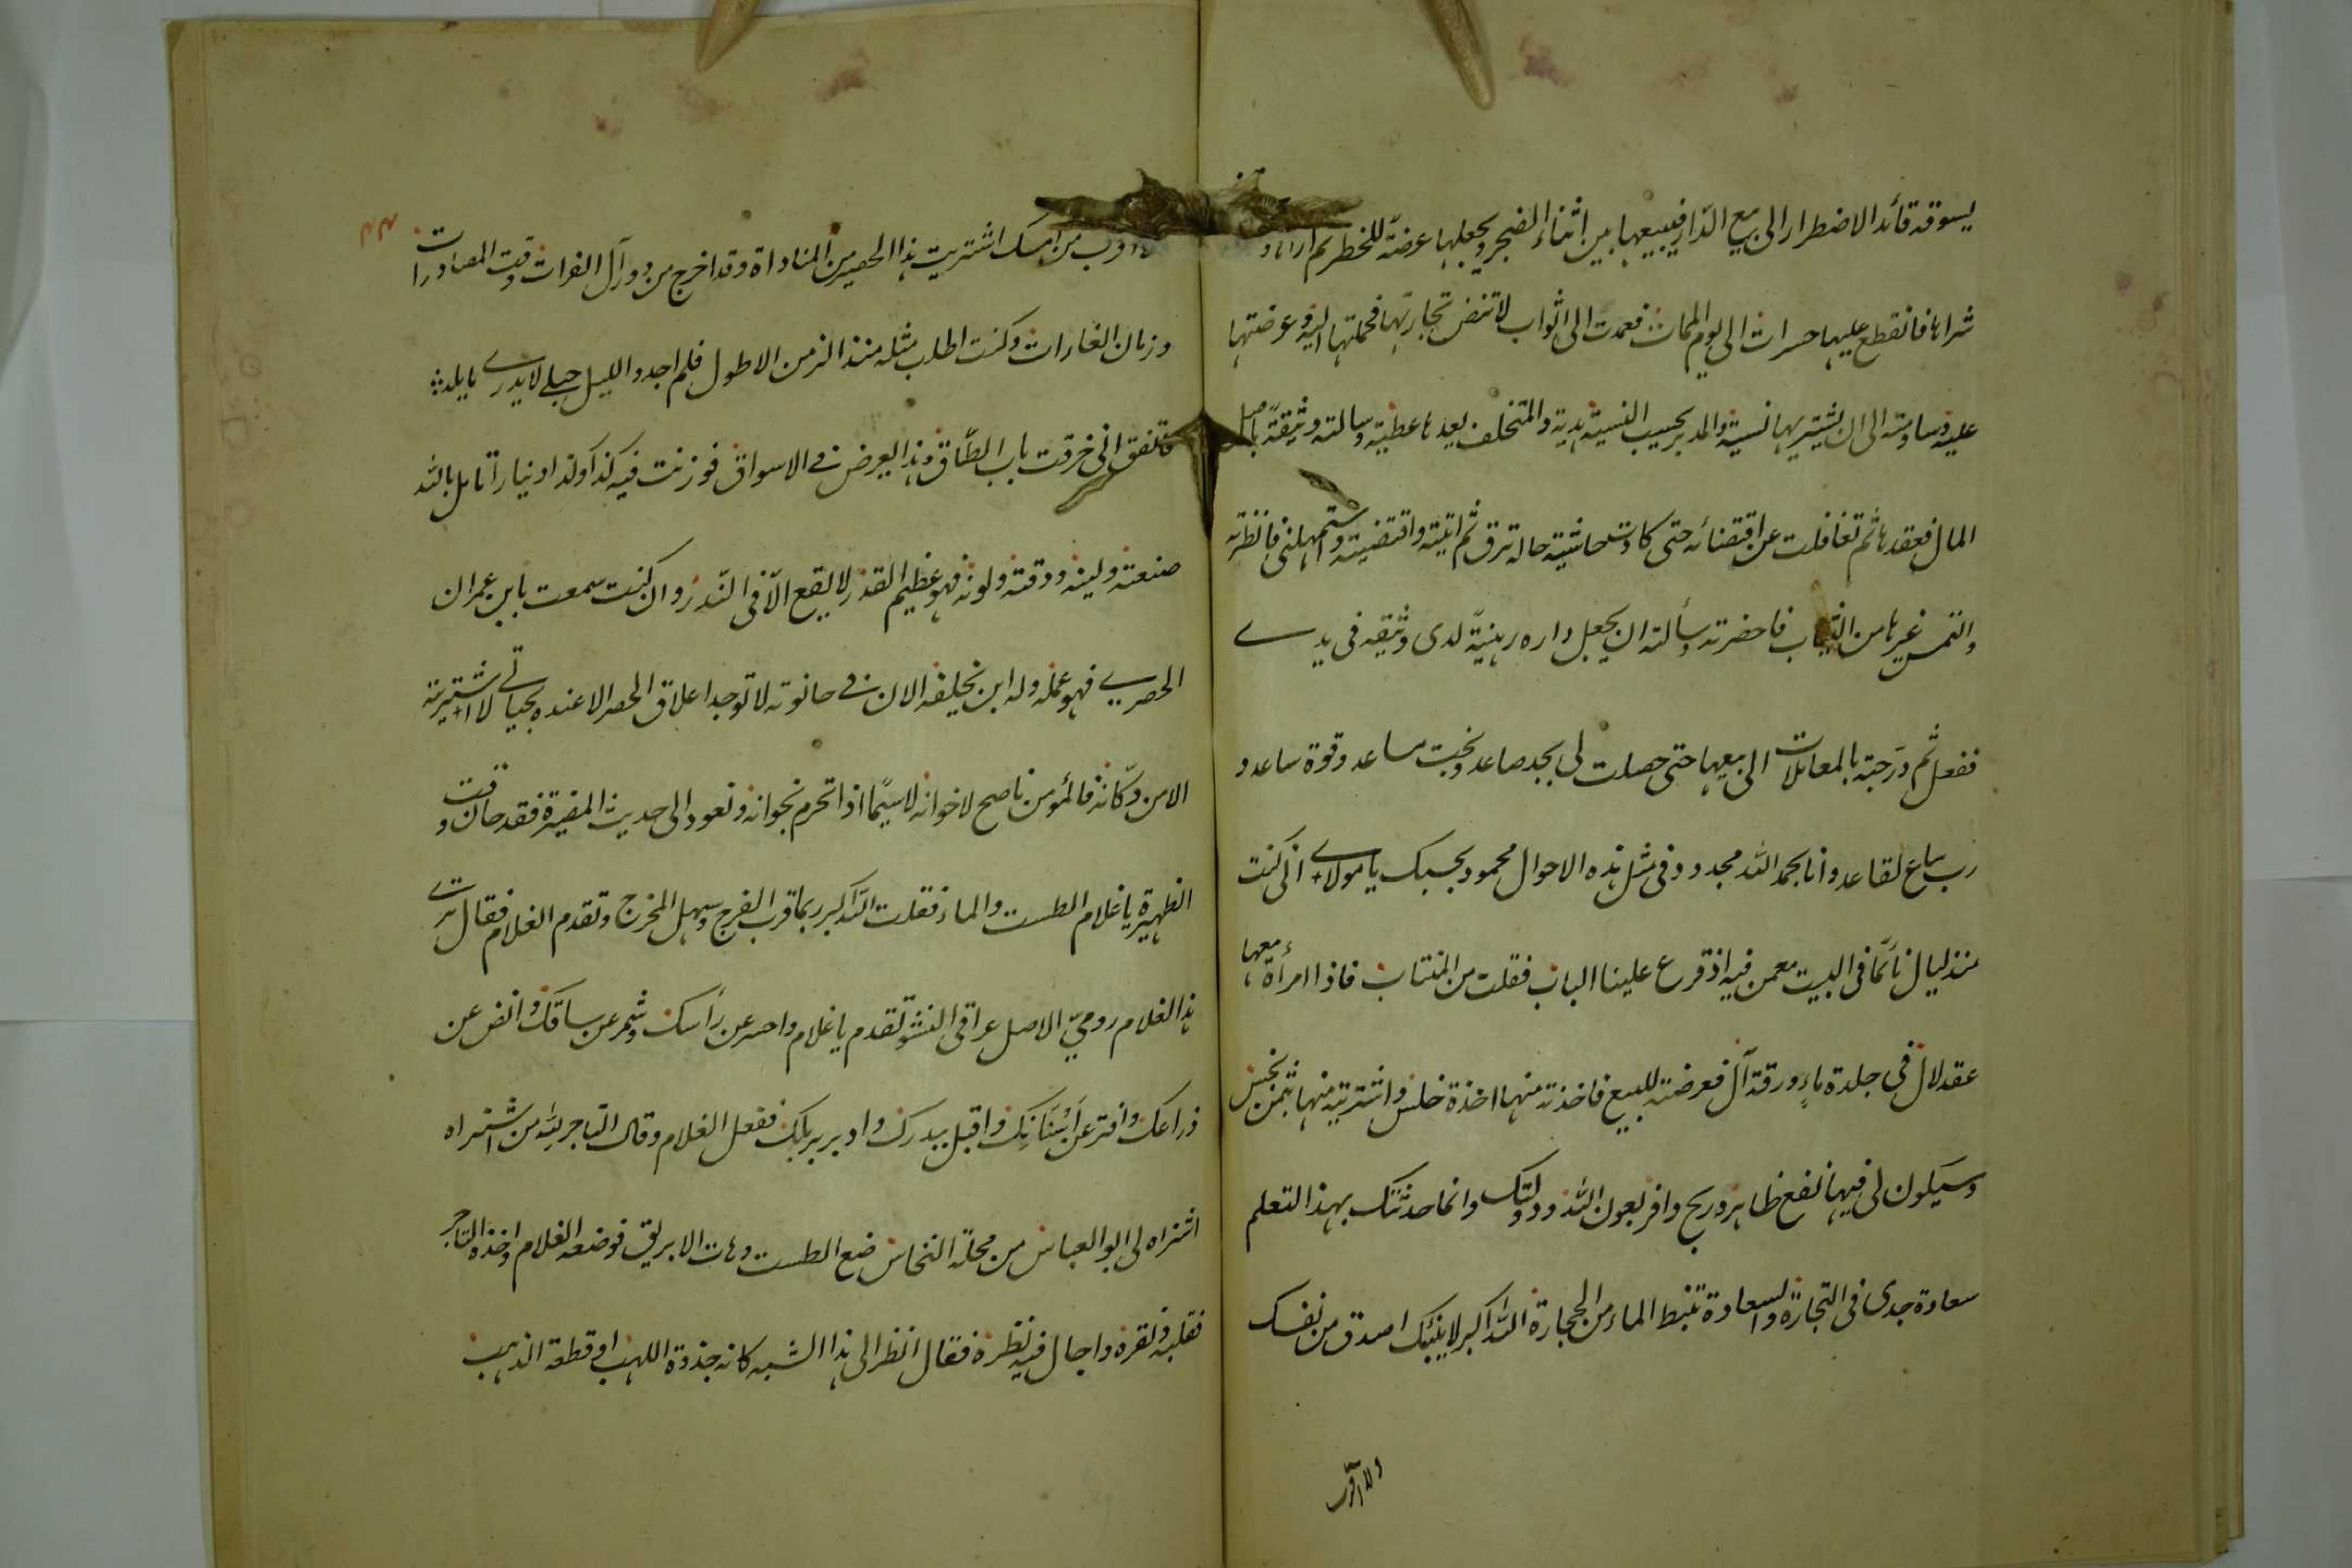 يسوقه قائد الاضطرار الى بيع الدّار فيبيعها بين اثناء الضجر ويجعلها عرضة للخطر ثم اراها و
شراها فانقطع عليها حسرات الى يوم الممات فعمدت الى اثواب لا تنض تجارتها فحملتها اليه وعرضتها
عليه وساومته الى ان يشتريها نسية والمدبر يحسب النسية هدية والمتخلف يعدها عطية وسالته وثيقة باصل
المال فعقدها ثم تغافلت عن اقتضائه حتى كادت حاشية حاله ترق ثم اتيته واقتضيته واستمهلنى فانظرته
والتمس غيرها من الثياب فاحضرته وسألته ان يجعل داره رهينةً لدى وثيقه فى يدي
ففعل ثم درّجته بالمعاملات الى بيعها حتى حصلت لى بجد صاعد وبخت مساعد وقوة ساعد و
رب ساع لقاعد وانا بحمد الله مجدود وفى مثل هذه الاحوال محمود بحسبك يا مولاي انى كنت
منذ ليال نائمًا فى البيت مع من فيه اذ قرع علينا الباب فقلت من المنتاب فاذا امرأة معها
عقد لال فى جلدة ماءٍ ورقة آل فعرضته للبيع فاخذته منها اخذة خلس واشتريته منها بثمن بخس
وسيكون لى فيها نفع ظاهر وربح وافر بعون الله ودولتك وانما حدثتك بهذا لتعلم
سعادة جدى فى التجارة والسعادة تنبط الماء من الحجارة الله اكبر لا ينبئك اصدق من نفسك
ولا اقرب
ولا اقرب من امسك اشتريت هذا الحصير من المناداة وقد اخرج من دور آل الفرات وقت المصادرات
وزمان الغارات وكنت اطلب مثله منذ الزمن الاطول فلم اجد والليل حبلى لا يدرى ما يلد
فاتفق انى خرقت باب الطّاق وهذا يعرض فى الاسواق فوزنت فيه كذا وكذا دينارا تامل بالله
صنعته ولينه ودقته ولونه فهو عظيم القدر لا يقع الّا فى النّدر وان كنت سمعت بابن عمران
الحصري فهو عمله وله ابن يخلفه الان فى حانوته لا توجد اعلاق الحصر الا عنده بحياتى لا اشتريته
الا من دكّانه فالمؤمن ناصح لاخوانه لاسيّما اذا تحرم بخوانه ونعود الى حديث المضيرة فقد حان وقت
الظهيرة يا غلام الطست والماء فقلت الله اكبر ربما قرب الفرج وسهل المخرج وتقدم الغلام فقال ترى
هذا الغلام روميّ الاصل عراقى النشو تقدم يا غلام واحسر عن رأسك وشمر عن ساقك وانض عن
ذراعك وافتر عن اَسْنَانِك واقبل بيدرك وادبر بربلك ففعل الغلام وقال التاجر بالله من اشتراه
اشتراه لى ابو العباس من محلة النخاس ضع الطست وهات الابريق فوضعه الغلام واخذه التاجر
فقلبه ونقره واجال فيه نظره فقال انظر الى هذا الشبه كانه جذوة اللهب او قطعة الذهب